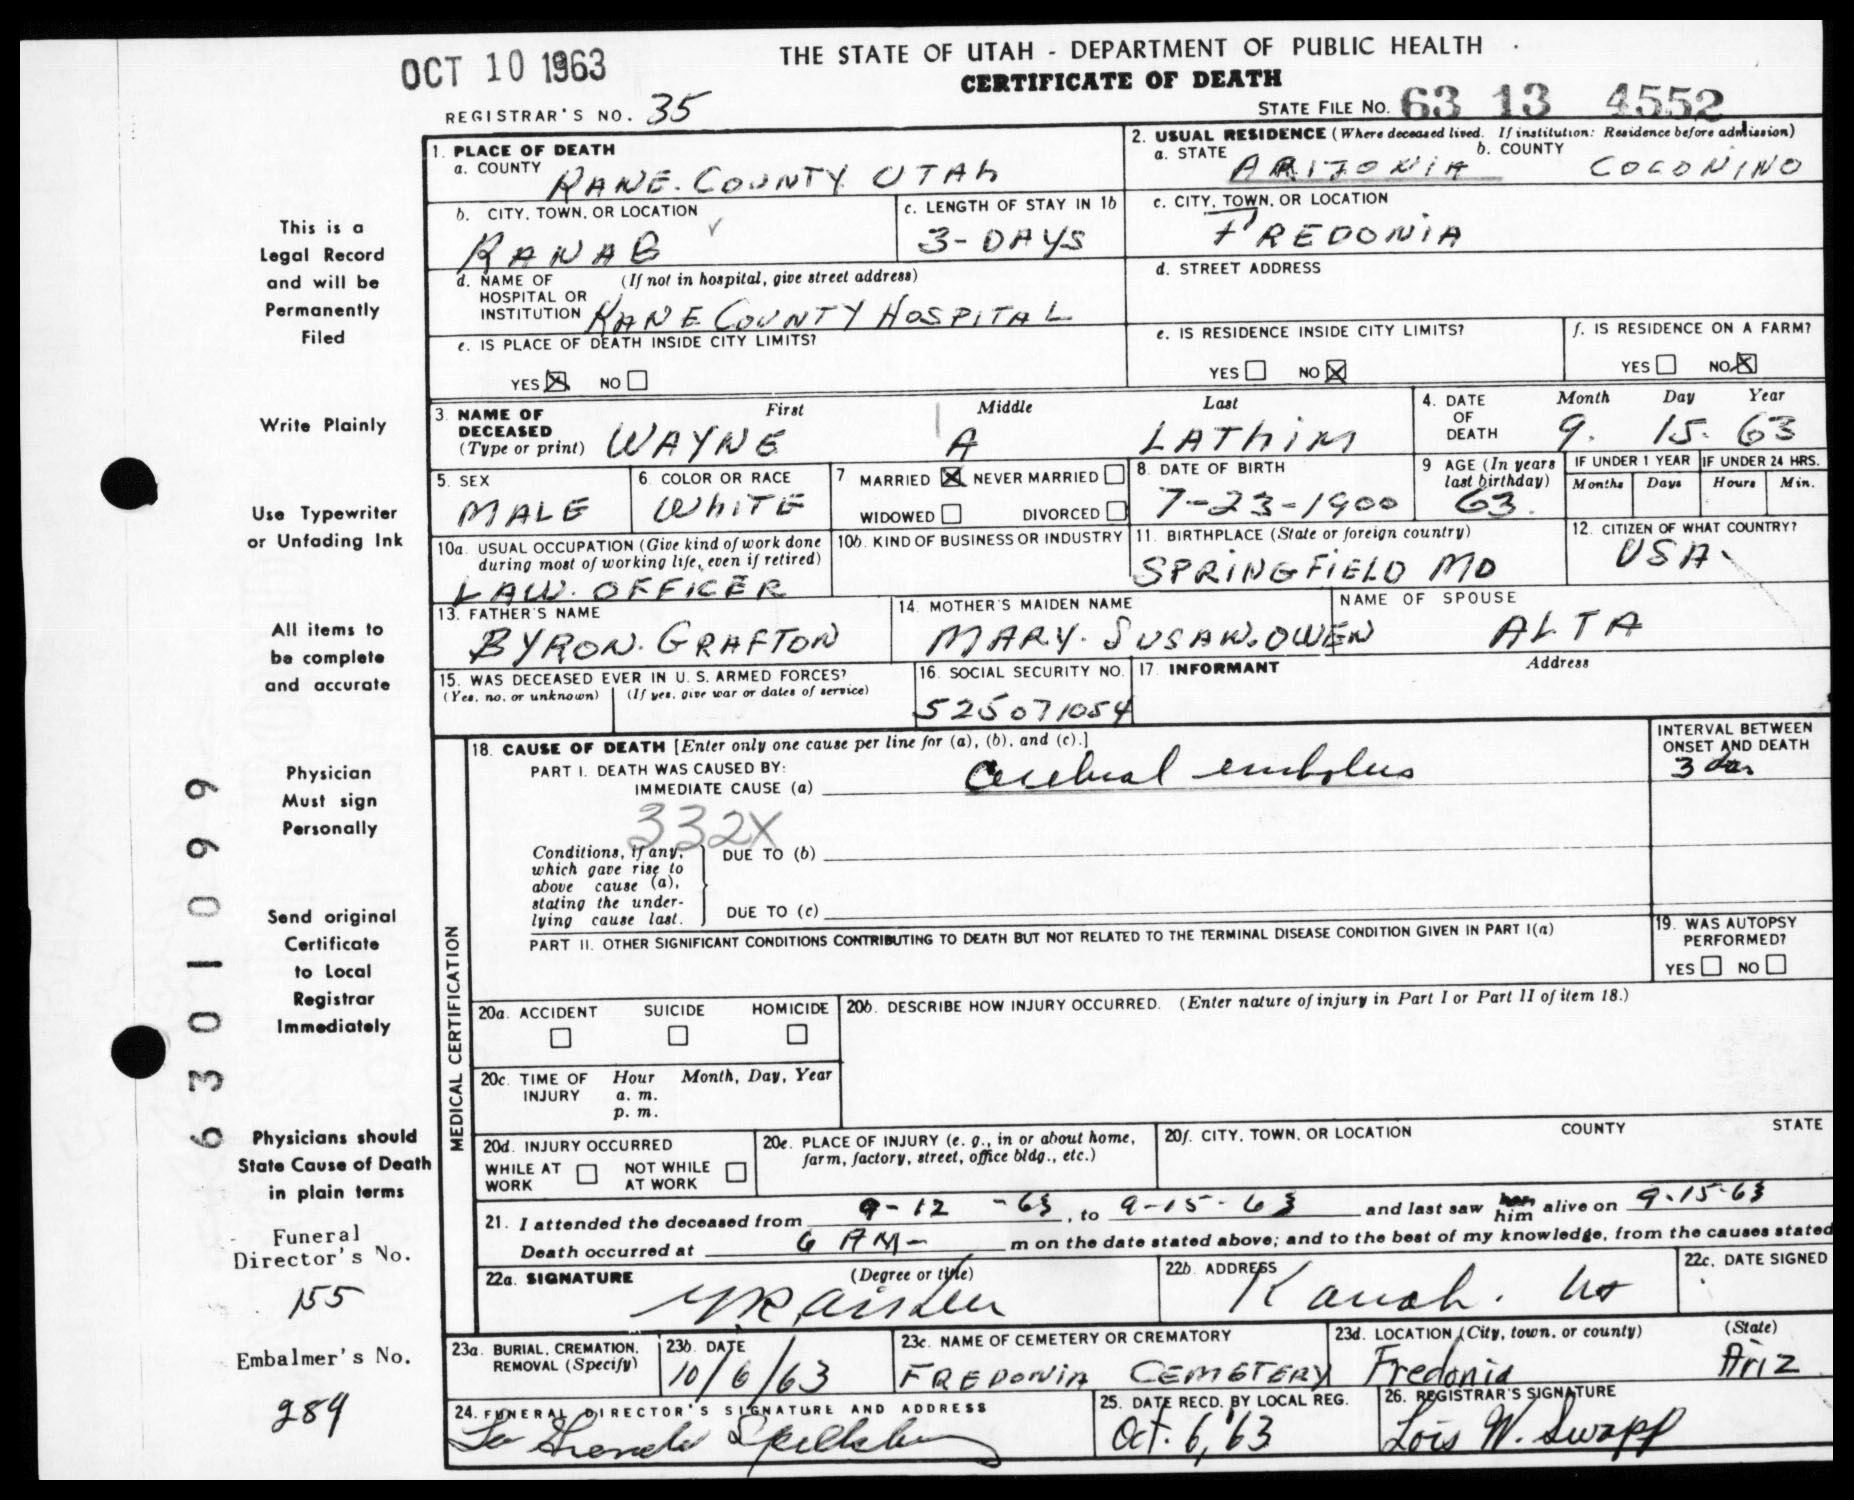 OCT 10 1963
THE STATE OF UTAH - DEPARTMENT OF PUBLIC HEALTH
CERTIFICATE OF DEATH
REGISTRAR'S NO. 35
STATE FILE NO. 63 13 4552
This is a
Legal Record
and will be
Permanently
Filed
Write Plainly
Use Typewriter
or Unfading Ink
All items to
be complete
and accurate
Physician
Must sign
Personally
Send original
Certificate
to Local
Registrar
Immediately
Physicians should
State Cause of Death
in plain terms
Funeral
Director's No.
155
Embalmer's No.
289
6301099
1. PLACE OF DEATH
a. COUNTY KANE. COUNTY UTAh
2. USUAL RESIDENCE (Where deceased lived. If institution: Residence before admission)
a. STATE ARIZONIA b. COUNTY COCONINO
b. CITY, TOWN, OR LOCATION
KANAB
c. LENGTH OF STAY IN 1b
3-DAYS
c. CITY, TOWN, OR LOCATION
FREDONIA
d. NAME OF HOSPITAL OR INSTITUTION (If not in hospital, give street address)
KANE COUNTY HOSPITAL
d. STREET ADDRESS
e. IS PLACE OF DEATH INSIDE CITY LIMITS?
YES NO
e. IS RESIDENCE INSIDE CITY LIMITS?
YES NO
f. IS RESIDENCE ON A FARM?
YES NO
3. NAME OF DECEASED (Type or print)
First Middle Last
WAYNE A LAThIM
4. DATE OF DEATH
Month Day Year
9. 15. 63
5. SEX
MALE
6. COLOR OR RACE
WhITE
7 MARRIED NEVER MARRIED
WIDOWED DIVORCED
8. DATE OF BIRTH
7-23-1900
9 AGE (In years last birthday)
63.
IF UNDER 1 YEAR
Months Days
IF UNDER 24 HRS.
Hours Min.
10a. USUAL OCCUPATION (Give kind of work done during most of working life, even if retired)
LAW. OFFICER
10b. KIND OF BUSINESS OR INDUSTRY
11. BIRTHPLACE (State or foreign country)
SPRINGFIELD MO
12. CITIZEN OF WHAT COUNTRY?
USA
13. FATHER'S NAME
BYRON. GRAFTON
14. MOTHER'S MAIDEN NAME
MARY. SUSAN. OWEN
NAME OF SPOUSE
ALTA
15. WAS DECEASED EVER IN U. S. ARMED FORCES?
(Yes, no, or unknown) (If yes, give war or dates of service)
16. SOCIAL SECURITY NO.
525071054
17. INFORMANT Address
MEDICAL CERTIFICATION
18. CAUSE OF DEATH [Enter only one cause per line for (a), (b), and (c).]
PART I. DEATH WAS CAUSED BY:
IMMEDIATE CAUSE (a) Cerebral embolus
INTERVAL BETWEEN ONSET AND DEATH
3 das
332X
Conditions, if any, which gave rise to above cause (a), stating the underlying cause last.
DUE TO (b)
DUE TO (c)
PART II. OTHER SIGNIFICANT CONDITIONS CONTRIBUTING TO DEATH BUT NOT RELATED TO THE TERMINAL DISEASE CONDITION GIVEN IN PART I(a)
19. WAS AUTOPSY PERFORMED?
YES NO
20a. ACCIDENT SUICIDE HOMICIDE
20b. DESCRIBE HOW INJURY OCCURRED. (Enter nature of injury in Part I or Part II of item 18.)
20c. TIME OF INJURY Hour Month, Day, Year
a. m.
p. m.
20d. INJURY OCCURRED
WHILE AT WORK NOT WHILE AT WORK
20e. PLACE OF INJURY (e. g., in or about home, farm, factory, street, office bldg., etc.)
20f. CITY, TOWN, OR LOCATION COUNTY STATE
21. I attended the deceased from 9-12 -63, to 9-15-63 and last saw her him alive on 9-15-63
Death occurred at 6 AM- m on the date stated above; and to the best of my knowledge, from the causes stated
22a. SIGNATURE (Degree or title)
22b. ADDRESS
Kanab. Ut
22c. DATE SIGNED
23a. BURIAL, CREMATION, REMOVAL (Specify)
23b. DATE
10/6/63
23c. NAME OF CEMETERY OR CREMATORY
FREDONIA CEMETERY
23d. LOCATION (City, town, or county) (State)
Fredonia Ariz
24. FUNERAL DIRECTOR'S SIGNATURE AND ADDRESS
25. DATE RECD. BY LOCAL REG.
Oct. 6, '63
26. REGISTRAR'S SIGNATURE
Lois W. Swapp